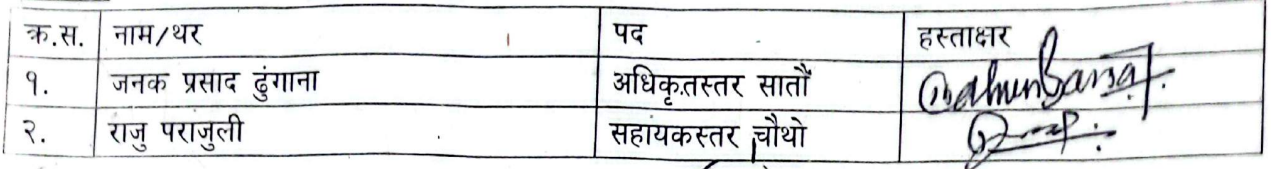 क्र.स. नाम/थर पद हस्ताक्षर
१. जनक प्रसाद ढुंगाना अधिकृतस्तर सातौं
२. राजु पराजुली सहायकस्तर चौथो